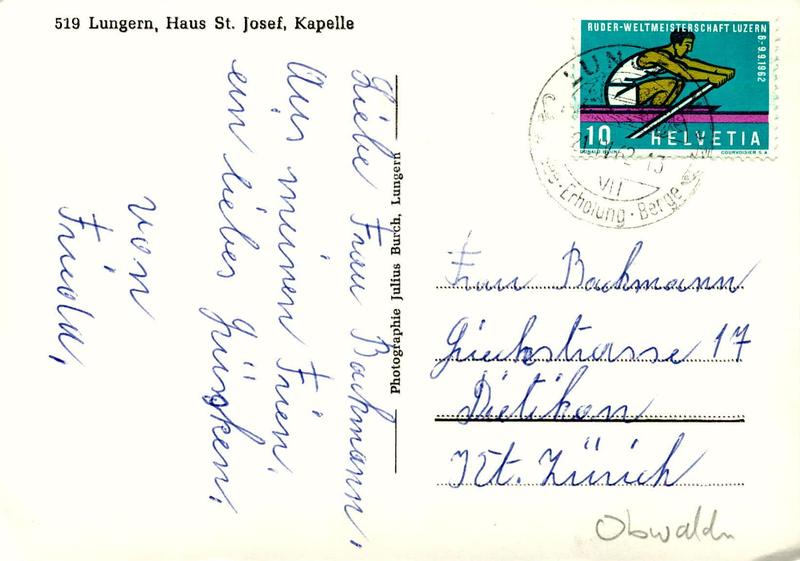 519 Lungern, Haus St. Josef, Kapelle
Liebe Frau Bachmann,
Aus meinen Frien.
ein liebes Grüsken.
von
Frida,
Photographie Julius Burch, Lungern
RUDER-WELTMEISTERSCHAFT LUZERN
6-9.9.1962
10 HELVETIA
COURVOISIER S.A.
LUN
VII
Erholung · Berge
Frau Bachmann
17
Dietikon
Kt. Zürich
Obwaldn